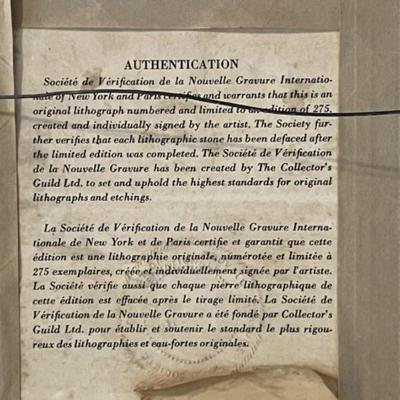 AUTHENTICATION
Société de Vérification de la Nouvelle Gravure Internatio-
nale of New York and Paris certifies and warrants that this is an
original lithograph numbered and limited to an edition of 275,
created and individually signed by the artist. The Society fur-
ther verifies that each lithographic stone has been defaced after
the limited edition was completed. The Société de Vérification
de la Nouvelle Gravure has been created by The Collector's
Guild Ltd. to set and uphold the highest standards for original
lithographs and etchings.
La Société de Vérification de la Nouvelle Gravure Interna-
tionale de New York et de Paris certifie et garantit que cette
édition est une lithographie originale, numérotée et limitée à
275 exemplaires, créée et individuellement signée par l'artiste.
La Société vérifie aussi que chaque pierre lithographique de
cette édition est effacée après le tirage limité. La Société de
Vérification de la Nouvelle Gravure a été fondé par Collector's
Guild Ltd. pour établir et soutenir le standard le plus rigou-
reux des lithographies et eau-fortes originales.